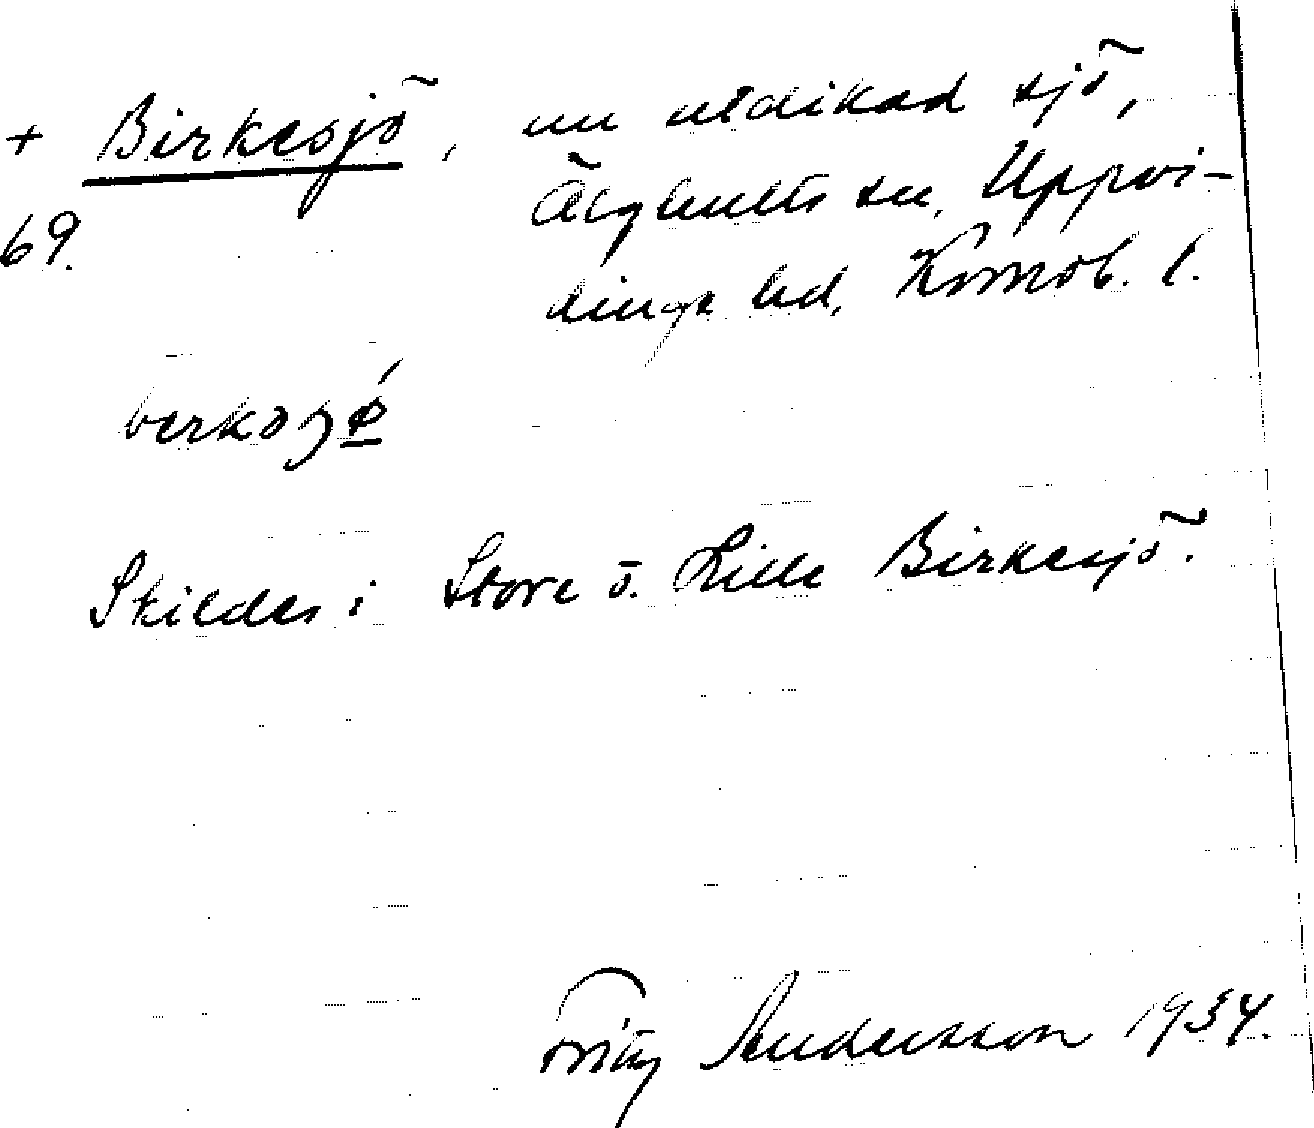 + Birkesjö, nu utdikad sjö,
69. Älghults sn, Uppvi-
dinge hd, Kronob. l.
berkəʃǿ̱
Skildes i Store o. Lille Birkesjö.
Fritz Andersson 1934.